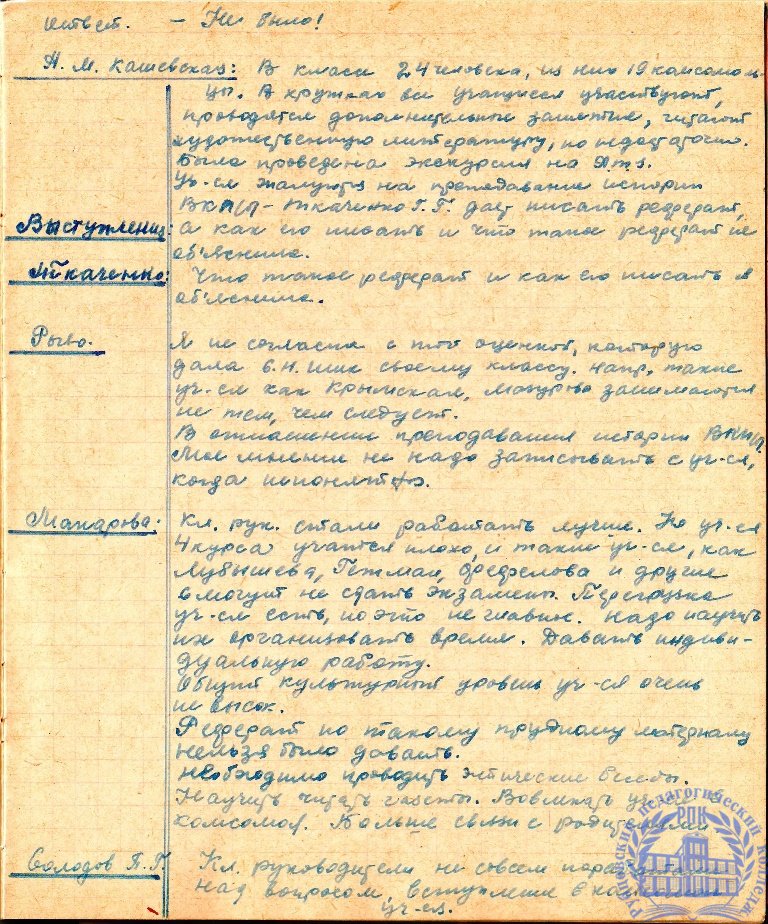 Ответ. — Не было!
А. М. Кашевская: В классе 24 человека, из них 19 комсомоль-
цы. В кружках все учащиеся участвуют,
проводятся дополнительные занятия, читают
художественную литературу, но недостаточно.
Была проведена экскурсия на
Уч-ся жалуются на преподавание истории
ВКП/б/ – Ткаченко Г. Г. дает писать реферат,
Выступления: а как его писать и что такое реферат не
об'яснила.
Ткаченко: Что такое реферат и как его писать я
об'яснила.
Я не согласна с той оценкой, которую
дала своему классу. Напр. такие
уч-ся как Крымская, занимаются
не тем, чем следует.
В отношении преподавания истории ВКП/б/.
Мое мнение не надо записывать с уч-ся,
когда непонятно.
Макарова: Кл. рук. стали работать лучше. Но уч-ся
4 курса учатся плохо, и такие уч-ся, как
Лубышева, Гетман, Федрелова и другие
могут не сдать экзамены. Перегрузка
уч-ся есть, но это не главное. Надо научить
их организовать время. Давать индиви-
дуальную работу.
Общий культурный уровень уч-ся очень
не высок.
Реферат по такому трудному материалу
нельзя было давать.
Необходимо проводить этические беседы.
Научить читать газеты. Вовлекать уч-ся
комсомол. Больше связи с родителями
Солодов П. Г. Кл. руководители не совсем
над вопросом, вступление в
уч-ся.
Рубцовский педагогический колледж
РПК